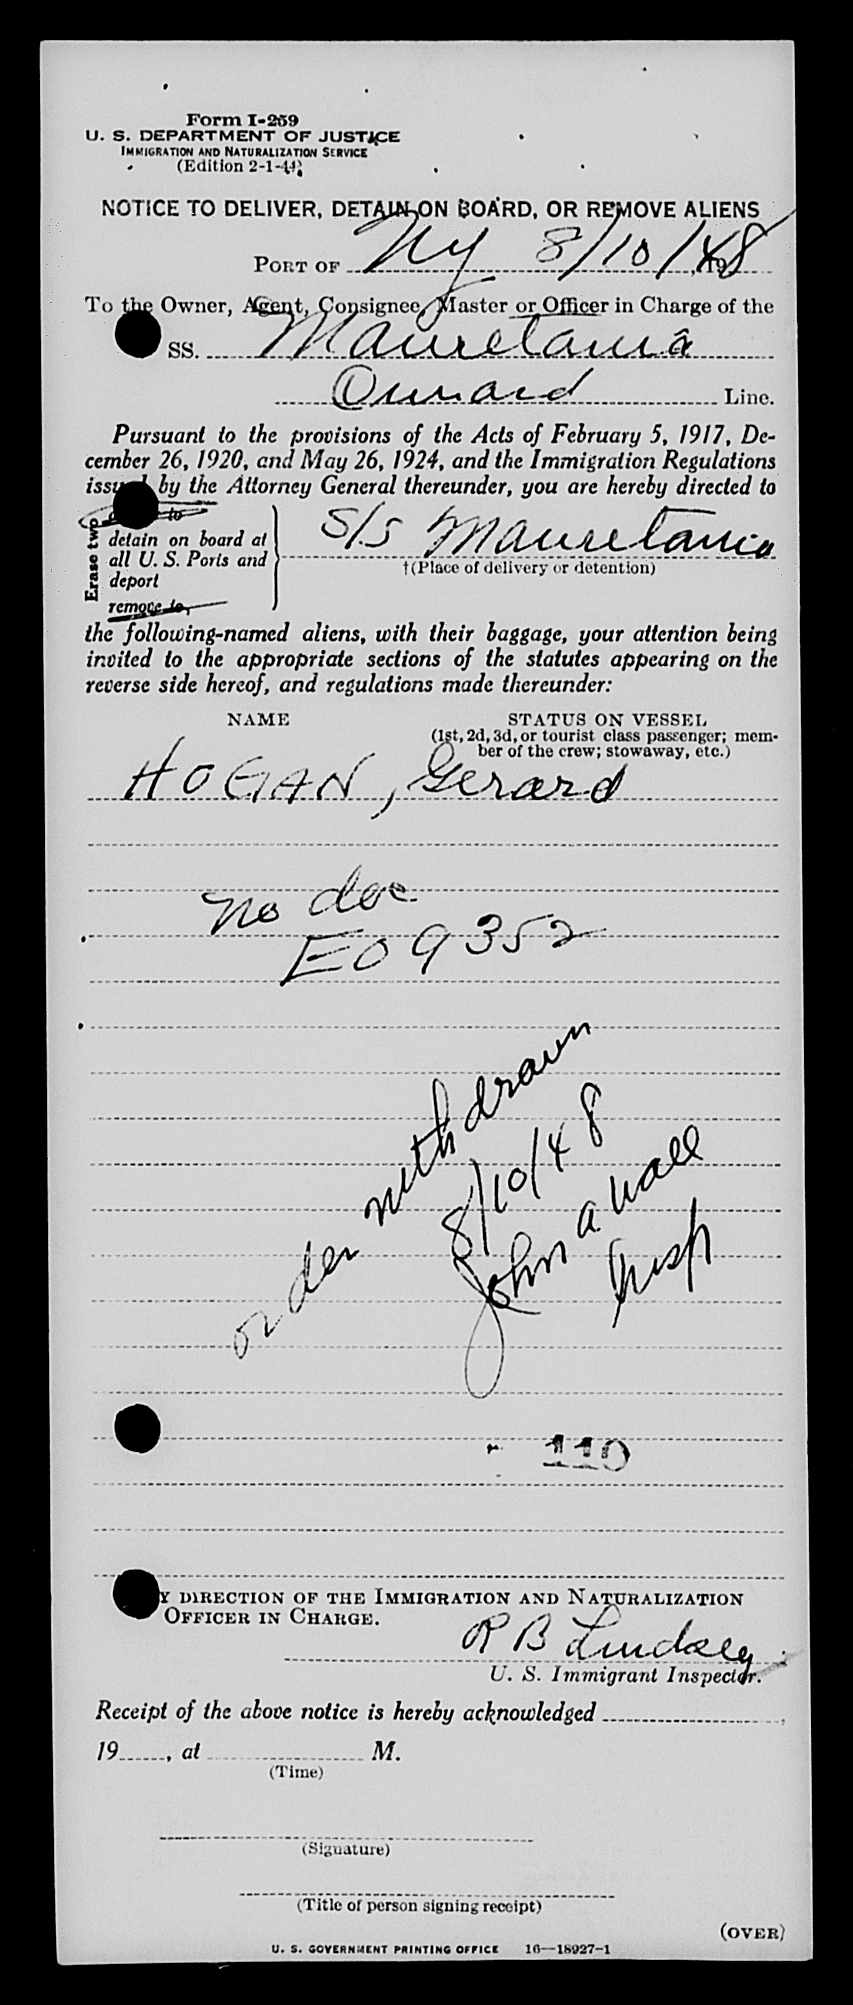 Form I-259
U. S. DEPARTMENT OF JUSTICE
IMMIGRATION AND NATURALIZATION SERVICE
(Edition 2-1-44)
NOTICE TO DELIVER, DETAIN ON BOARD, OR REMOVE ALIENS
PORT OF NY 8/10/48, 19
To the Owner, Agent, Consignee, Master or Officer in Charge of the
SS. Mauretania
Cunard Line.
Pursuant to the provisions of the Acts of February 5, 1917, De-
cember 26, 1920, and May 26, 1924, and the Immigration Regulations
issued by the Attorney General thereunder, you are hereby directed to
Erase two
to
detain on board at
all U. S. Ports and
deport
remove to,
S/S Mauretania
†(Place of delivery or detention)
the following-named aliens, with their baggage, your attention being
invited to the appropriate sections of the statutes appearing on the
reverse side hereof, and regulations made thereunder:
NAME STATUS ON VESSEL
(1st, 2d, 3d, or tourist class passenger; mem-
ber of the crew; stowaway, etc.)
HOGAN, Gerard
no doc
EO 9352
order withdrawn
8/10/48
John A Wall
Insp
110
BY DIRECTION OF THE IMMIGRATION AND NATURALIZATION
OFFICER IN CHARGE.
R B Lindsey
U. S. Immigrant Inspector.
Receipt of the above notice is hereby acknowledged ,
19 , at M.
(Time)
(Signature)
(Title of person signing receipt)
(OVER)
U. S. GOVERNMENT PRINTING OFFICE 16—18927-1